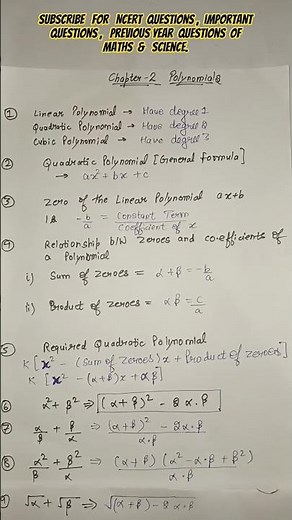 SUBSCRIBE FOR NCERT QUESTIONS, IMPORTANT
QUESTIONS, PREVIOUS YEAR QUESTIONS OF
MATHS & SCIENCE.
Chapter-2 Polynomials
① Linear Polynomial → Have degree 1
Quadratic Polynomial → Have degree 2
Cubic Polynomial → Have degree 3
② Quadratic Polynomial [General formula]
→ ax² + bx + c
③ Zero of the Linear Polynomial ax+b
is -b/a = Constant Term / Coefficient of x
④ Relationship b/w zeroes and co-efficients of
a Polynomial
i) Sum of zeroes = α + β = -b/a
ii) Product of zeroes = αβ = c/a
⑤ Required Quadratic Polynomial
K [x² - (Sum of zeroes)x + Product of zeroes]
K [x² - (α+β)x + αβ]
⑥ α² + β² ⇒ (α+β)² - 2α.β
⑦ α/β + β/α ⇒ (α+β)² - 2α.β / α.β
⑧ α²/β + β²/α ⇒ (α+β)(α² - α.β + β²) / α.β
9) √α + √β ⇒ √(α+β) - 2α.β